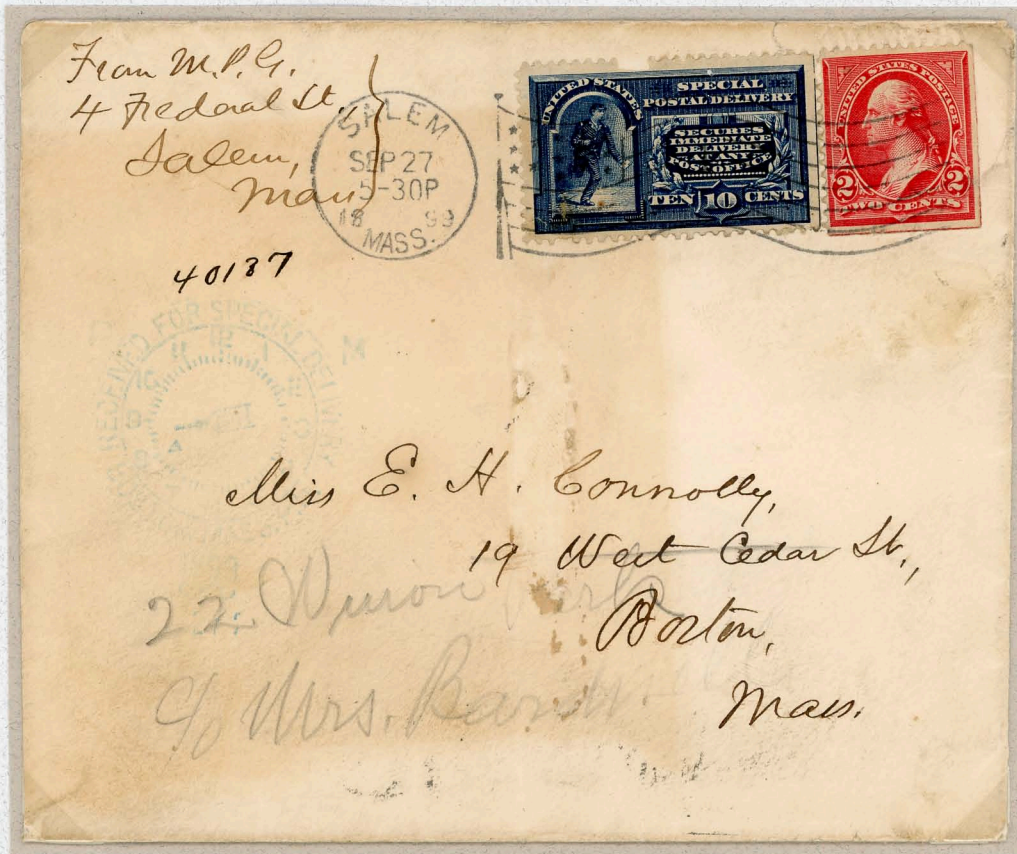 From M.P.G.
4 Federal St.,
Salem,
Mass
SALEM
SEP 27
5-30P
1899
MASS.
UNITED STATES
SPECIAL
POSTAL DELIVERY
SECURES
IMMEDIATE
DELIVERY
AT ANY
POST OFFICE
TEN 10 CENTS
UNITED STATES POSTAGE
2 2
TWO CENTS
40137
RECEIVED FOR SPECIAL DELIVERY
Miss E. H. Connolly,
19 West Cedar St.,
Boston,
Mass.
22 Union Park
c/o Mrs.